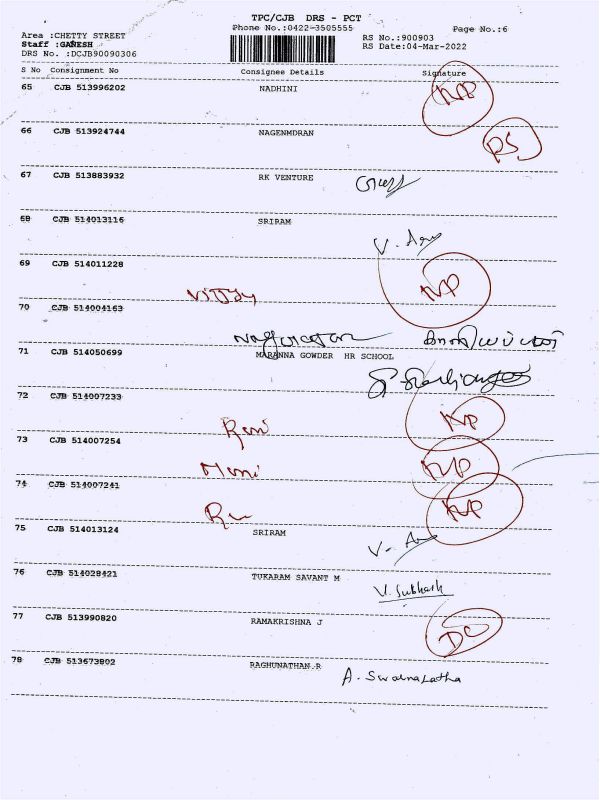 TPC/CJB DRS - PCT
Phone No.:0422-3505555 Page No.:6
Area :CHETTY STREET RS No.:900903
Staff :GANESH RS Date:04-Mar-2022
DRS No. :DCJB90090306
S No Consignment No Consignee Details Signature
65 CJB 513996202 NADHINI NP
66 CJB 513924744 NAGENMDRAN RS
67 CJB 513883932 RK VENTURE
68 CJB 514013116 SRIRAM
69 CJB 514011228 NP
70 CJB 514004163
71 CJB 514050699 MARANNA GOWDER HR SCHOOL
72 CJB 514007233 NP
73 CJB 514007254 NP
74 CJB 514007241 NP
75 CJB 514013124 SRIRAM
76 CJB 514028421 TUKARAM SAVANT M V. Subhash
77 CJB 513990820 RAMAKRISHNA J DC
78 CJB 513673802 RAGHUNATHAN.R A. Swarnalatha